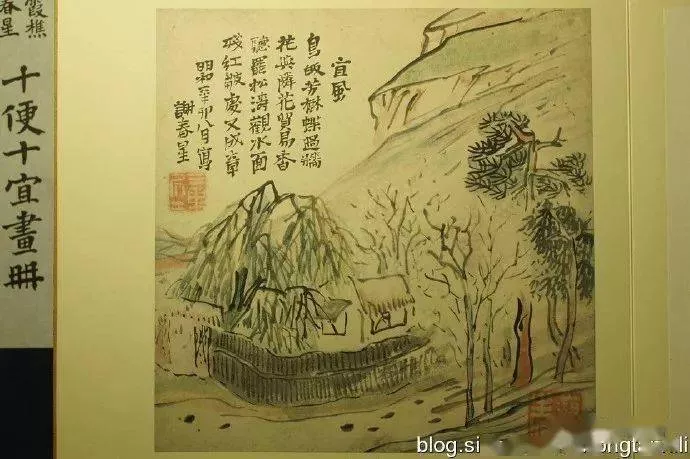 宜風
鳥芳蝶過牆
花與隣花貿易香
聽罷松濤觀水面
殘紅皺處又成章
明和辛卯八月寫
謝春星
霞樵
春星
十便十宜畫冊
blog.si